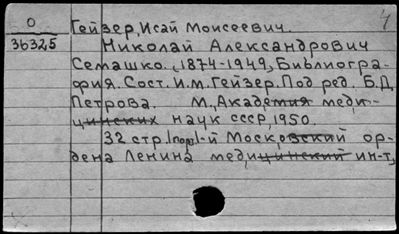 О
36325
Гейзер, Исай Моисеевич.
Николай Александрович
Семашко. (1874-1949) Библиогра-
фия. Сост. И.М. Гейзер. Под ред. Б.Д.
Петрова. М., Академия меди-
цинских наук СССР, 1950.
32 стр. 1-й Московский ор-
дена Ленина медицинский ин-т,